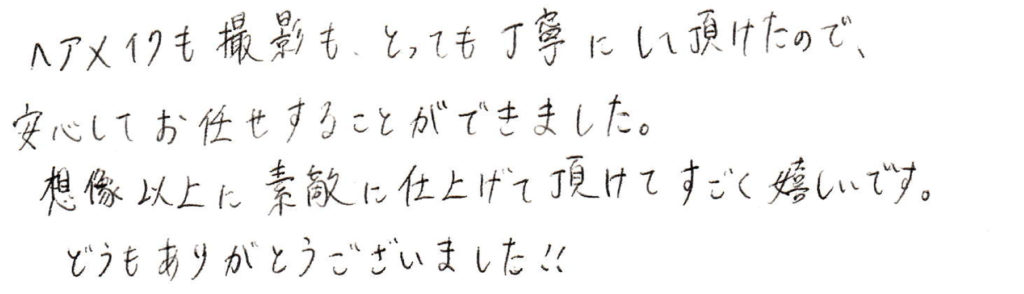 ヘアメイクも撮影も、とっても丁寧にして頂けたので、
安心してお任せすることができました。
想像以上に素敵に仕上げて頂けてすごく嬉しいです。
どうもありがとうございました!!